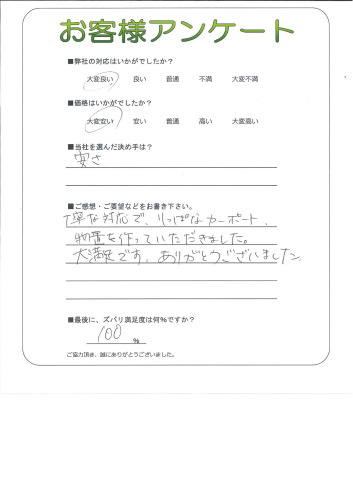 お客様アンケート
■弊社の対応はいかがでしたか?
大変良い 良い 普通 不満 大変不満
■価格はいかがでしたか?
大変安い 安い 普通 高い 大変高い
■当社を選んだ決め手は?
安さ
■ご感想・ご要望などをお書き下さい。
丁寧な対応で、りっぱなカーポート、
物置を作っていただきました。
大満足です。ありがとうございました。
■最後に、ズバリ満足度は何%ですか?
100 %
ご協力頂き、誠にありがとうございました。